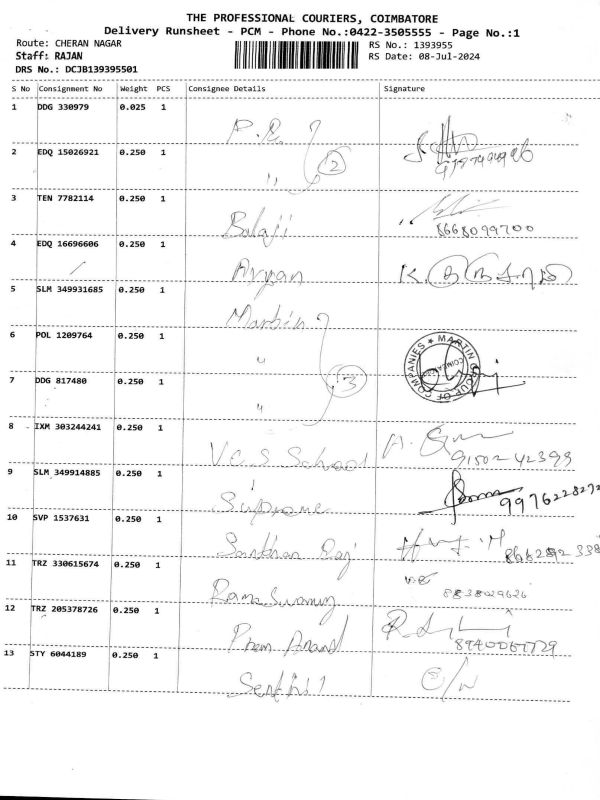 THE PROFESSIONAL COURIERS, COIMBATORE
Delivery Runsheet - PCM - Phone No.:0422-3505555 - Page No.:1
Route: CHERAN NAGAR RS No.: 1393955
Staff: RAJAN RS Date: 08-Jul-2024
DRS No.: DCJB139395501
S No Consignment No Weight PCS Consignee Details Signature
1 DDG 330979 0.025 1
2 EDQ 15026921 0.250 1 " 2
3 TEN 7782114 0.250 1 Balaji 8668099700
4 EDQ 16696606 0.250 1 Aryan
5 SLM 349931685 0.250 1 Martin
6 POL 1209764 0.250 1 " MARTIN GROUP OF COMPANIES
7 DDG 817480 0.250 1 " 3
8 IXM 303244241 0.250 1 V.C.S School 9150242399
9 SLM 349914885 0.250 1 9976228272
10 SVP 1537631 0.250 1
11 TRZ 330615674 0.250 1 Rama Swamy 8838029626
12 TRZ 205378726 0.250 1 Prem Anand
13 STY 6044189 0.250 1 Senthil